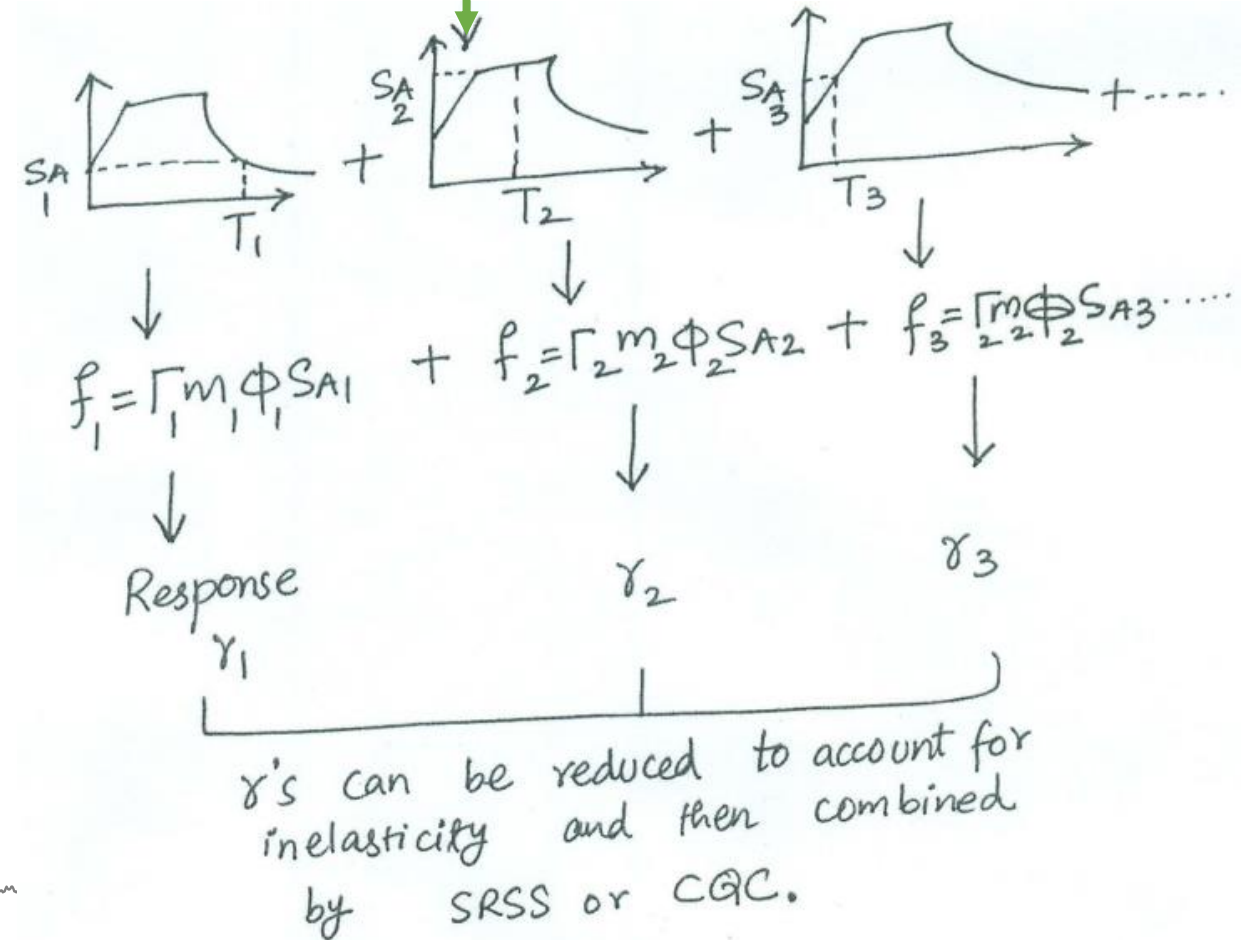 SA1 T1 + SA2 T2 + SA3 T3 + .....
f1 = Γ1 m1 Φ1 SA1 + f2 = Γ2 m2 Φ2 SA2 + f3 = Γ2 m2 Φ2 SA3 .....
Response
r1 r2 r3
r's can be reduced to account for
inelasticity and then combined
by SRSS or CQC.